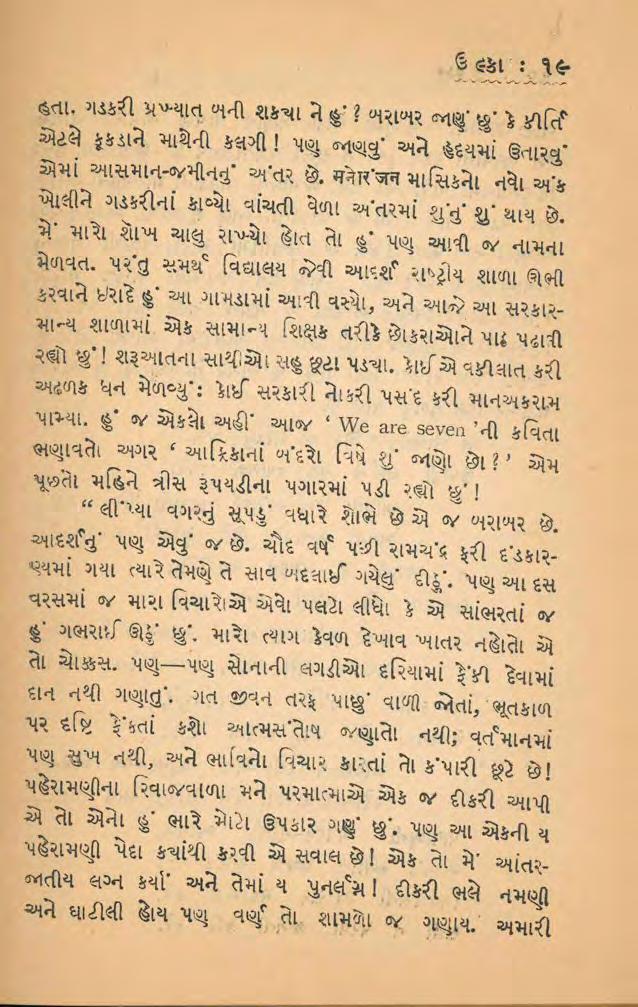 ઉલ્કા : ૧૯
હતા. ગડકરી પ્રખ્યાત બની શક્યા ને હું ? બરાબર જાણું છું કે કીર્તિ
એટલે કૂકડાને માથેની કલગી ! પણ જાણવું અને હૃદયમાં ઉતારવું
એમાં આસમાન-જમીનનું અંતર છે. मनोरंजन માસિકનો નવો અંક
ખોલીને ગડકરીનાં કાવ્યો વાંચતી વેળા અંતરમાં શુંનું શું થાય છે.
મેં મારો શોખ ચાલુ રાખ્યો હોત તો હું પણ આવી જ નામના
મેળવત. પરંતુ સમર્થ વિદ્યાલય જેવી આદર્શ રાષ્ટ્રીય શાળા ઊભી
કરવાને ઇરાદે હું આ ગામડામાં આવી વસ્યો, અને આજે આ સરકાર-
માન્ય શાળામાં એક સામાન્ય શિક્ષક તરીકે છોકરાઓને પાઠ પઢાવી
રહ્યો છું ! શરૂઆતના સાથીઓ સહુ છૂટા પડયા. કોઈ એ વકીલાત કરી
અઢળક ધન મેળવ્યું : કોઈ સરકારી નોકરી પસંદ કરી માનઅકરામ
પામ્યા. હું જ એકલો અહીં આજ ‘ We are seven ’ની કવિતા
ભણાવતો અગર ‘ આફ્રિકાનાં બંદરો વિષે શું જાણો છો ? ’ એમ
પૂછતો મહિને ત્રીસ રૂપયડીના પગારમાં પડી રહ્યો છું !
“ લીંપ્યા વગરનું સૂપડું વધારે શોભે છે એ જ બરાબર છે.
આદર્શનું પણ એવું જ છે. ચૌદ વર્ષ પછી રામચંદ્ર ફરી દંડકાર-
ણ્યમાં ગયા ત્યારે તેમણે તે સાવ બદલાઈ ગયેલું દીઠું. પણ આ દસ
વરસમાં જ મારા વિચારોએ એવો પલટો લીધો કે એ સાંભરતાં જ
હું ગભરાઈ ઊઠું છું. મારો ત્યાગ કેવળ દેખાવ ખાતર નહોતો એ
તો ચોક્કસ. પણ—પણ સોનાની લગડીઓ દરિયામાં ફેંકી દેવામાં
દાન નથી ગણાતું. ગત જીવન તરફ પાછું વાળી જોતાં, ભૂતકાળ
પર દૃષ્ટિ ફેંકતાં કશો આત્મસંતોષ જણાતો નથી; વર્તમાનમાં
પણ સુખ નથી, અને ભાવિનો વિચાર કરતાં તો કંપારી છૂટે છે !
પહેરામણીના રિવાજવાળા મને પરમાત્માએ એક જ દીકરી આપી
એ તો એનો હું ભારે મોટો ઉપકાર ગણું છું. પણ આ એકની ય
પહેરામણી પેદા ક્યાંથી કરવી એ સવાલ છે ! એક તો મેં આંતર-
જાતીય લગ્ન કર્યાં અને તેમાં ય પુનર્લગ્ન ! દીકરી ભલે નમણી
અને ઘાટીલી હોય પણ વર્ણ તો શામળો જ ગણાય. અમારી